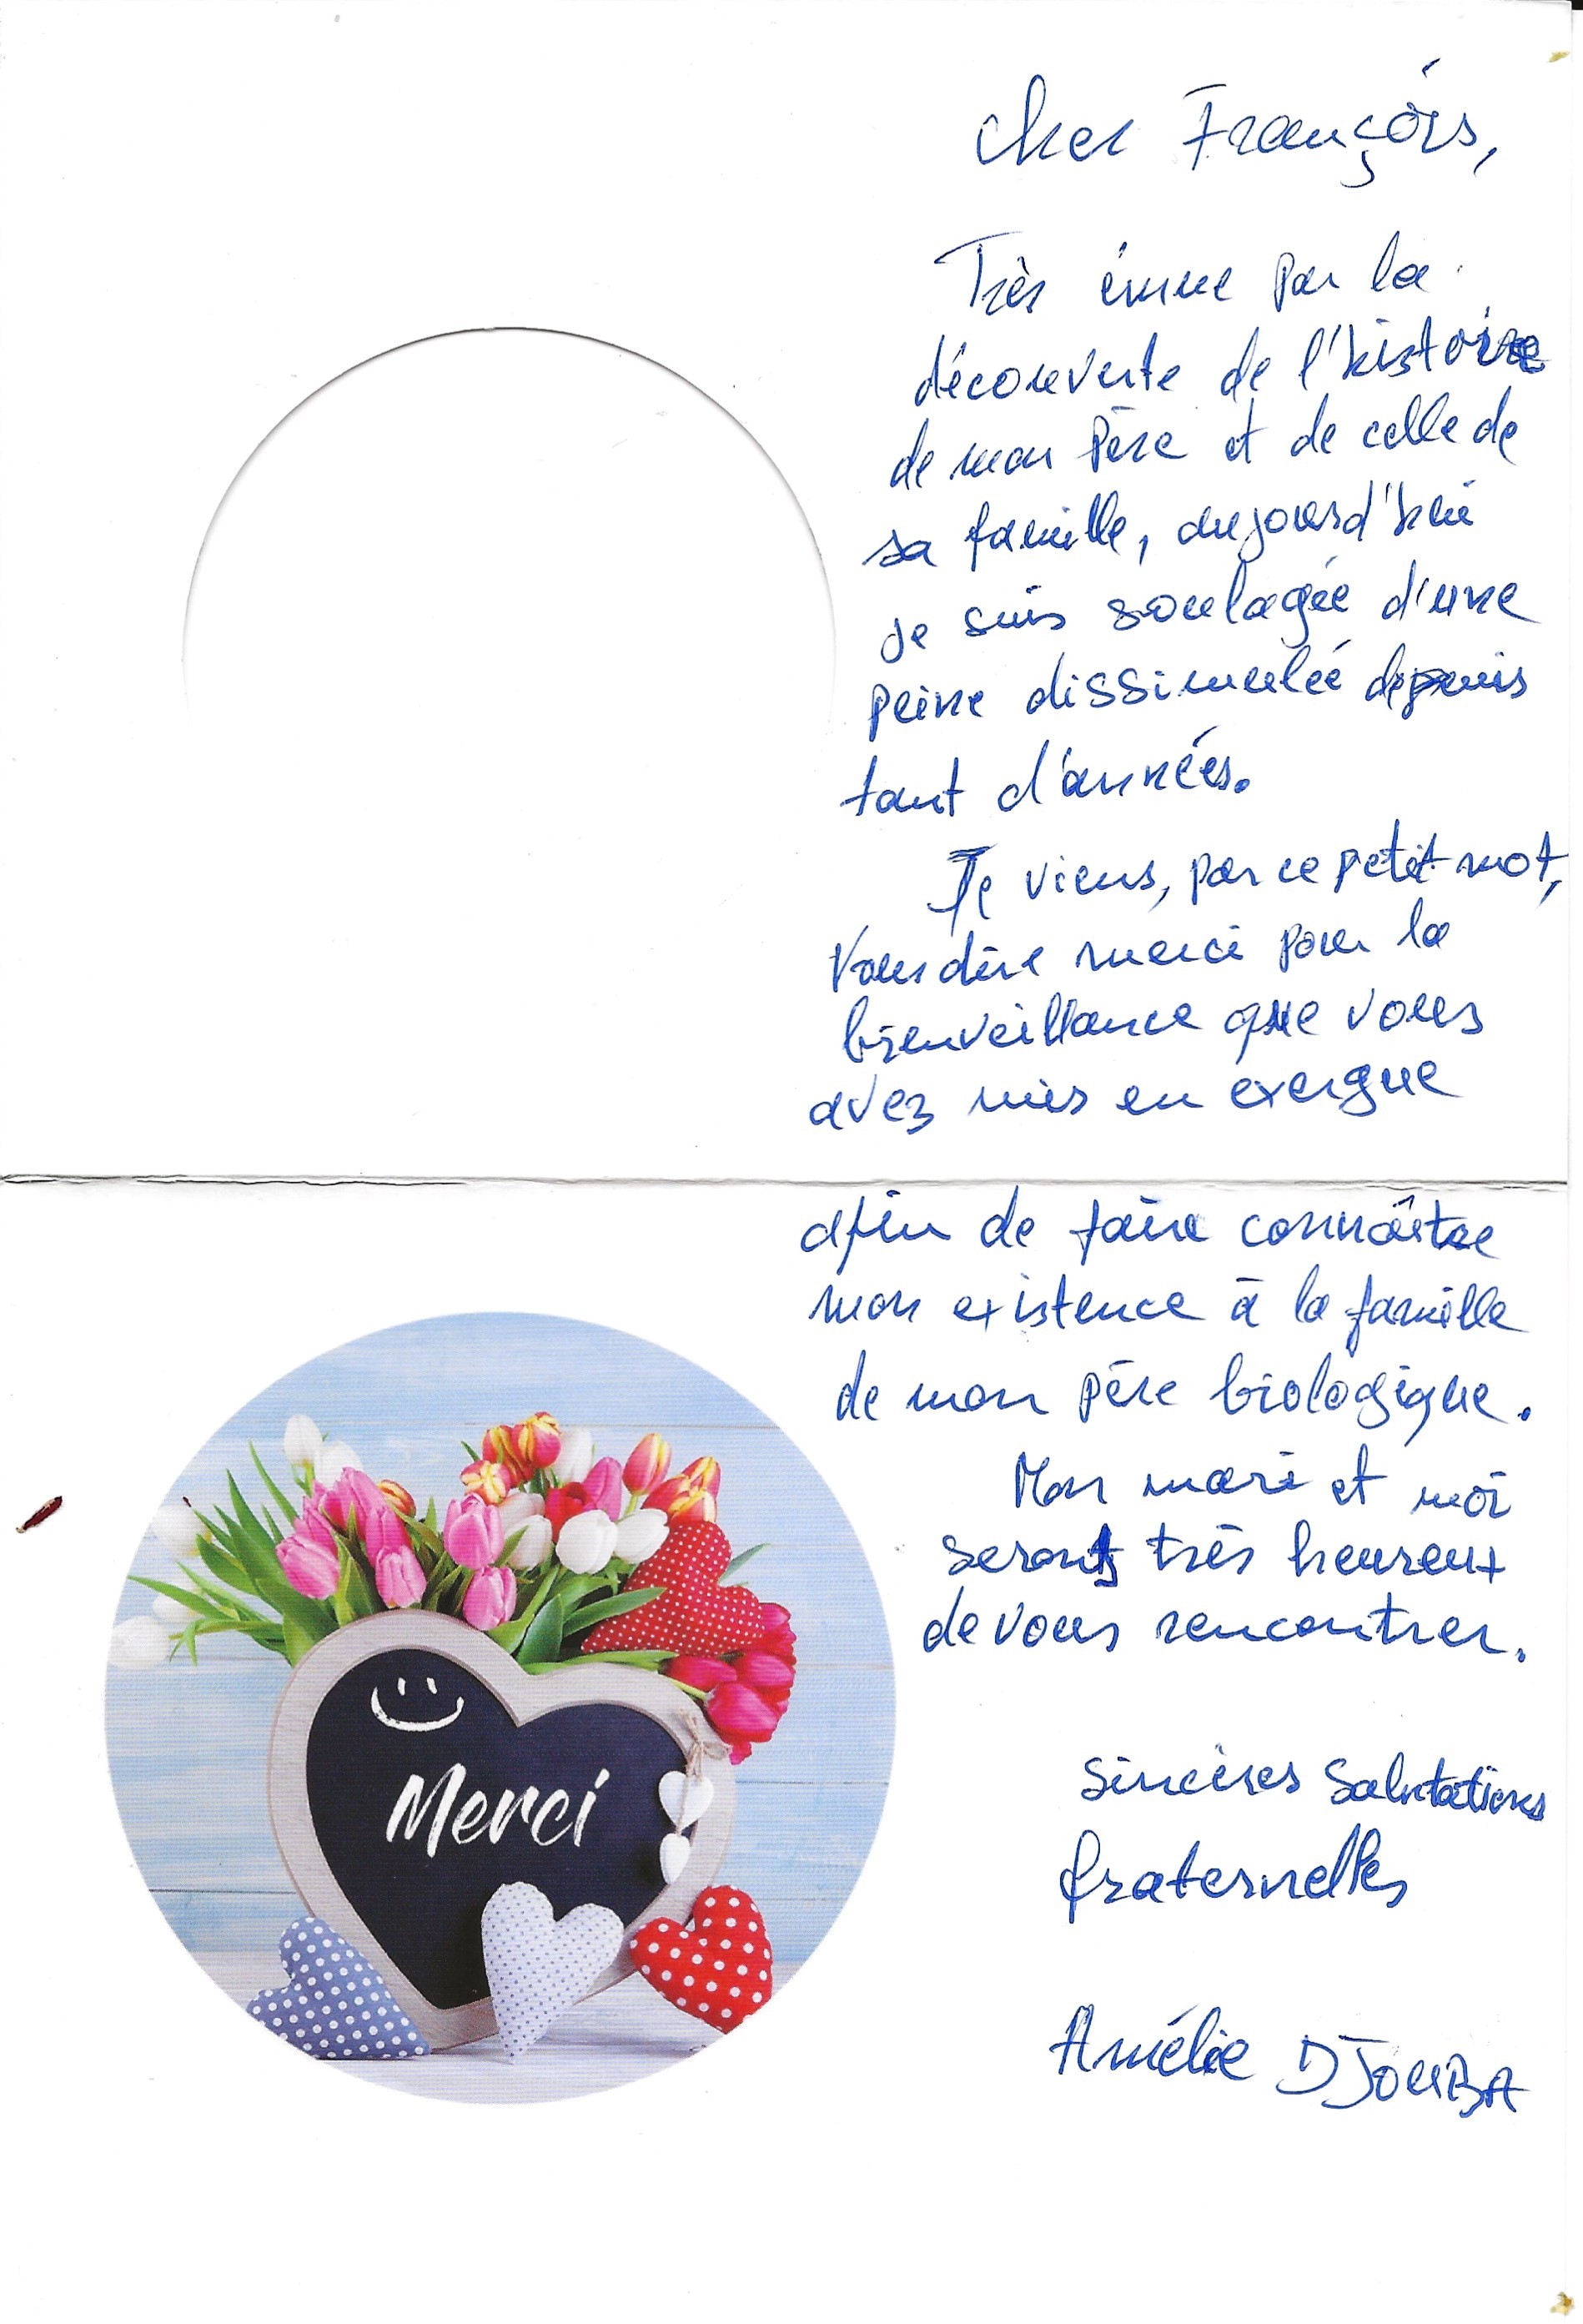 Cher François,
Très émue par la
découverte de l'histoire
de mon Père et de celle de
sa famille, aujourd'hui
je suis soulagée d'une
peine dissimulée depuis
tant d'années.
Je viens, par ce petit mot,
vous dire merci pour la
bienveillance que vous
avez mis en exergue
afin de faire connaître
mon existence à la famille
de mon père biologique.
Mon mari et moi
serons très heureux
de vous rencontrer.
Sincères Salutations
fraternelles
Amélie DJOUBA
Merci